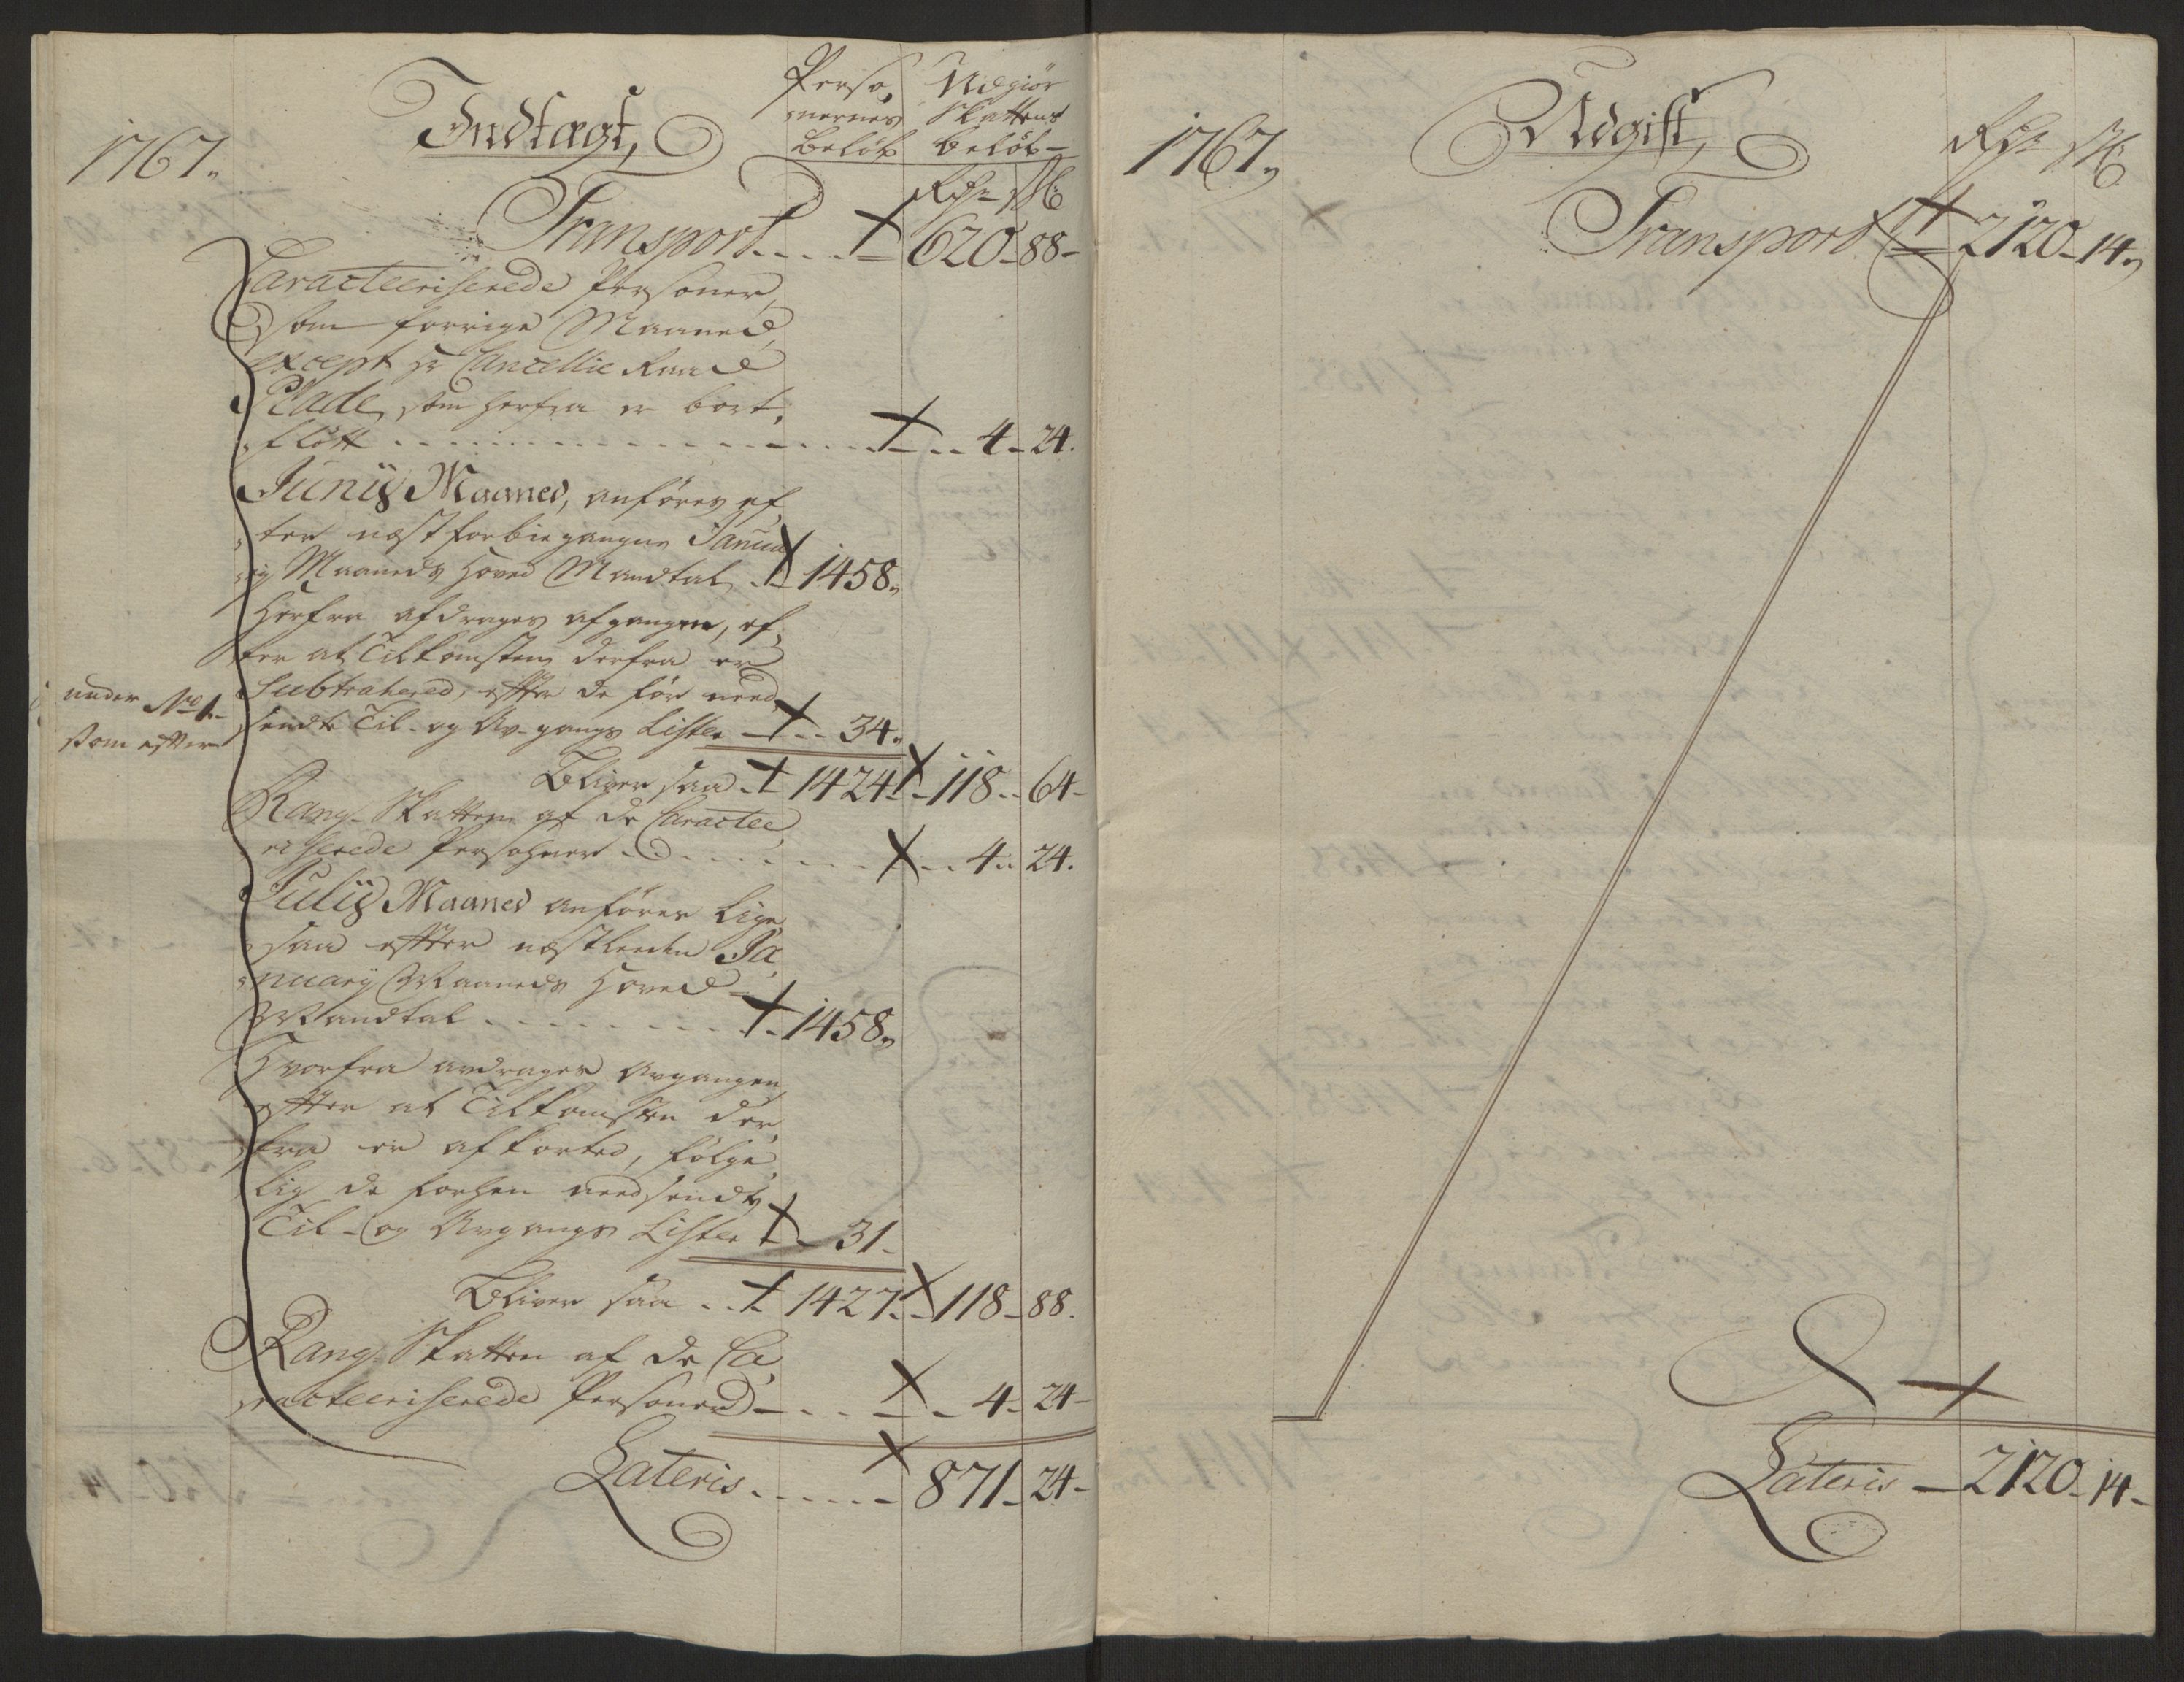 1767.
Indtægt,
Perso,
nernes
Beløb
Udgiør
Skattens
beløb-
Rdr ß
Transport.... 620-88-
Caracteeriserede Personer,
som forrige Maaned,
except Hr Cancellie Raad
Plade, som herfra er bort,
fløtt ............ 4-24.
Junij Maaned, anføres ef,
ter næst forbiegangne Janua
rij Maaneds Hoved Mandtal .. 1458.
Herfra afdrages afgangen, ef,
ter at Tilkomsten derfra er
Subtrahered, efter de før need,
sendte Til- og Av-gangs Lister .. 34.
under No 1.
som efter
Bliver saa .. 1424.. 118.. 64-
Rang-Skatten af de Caractee
riserede Persohner ........ 4.. 24.
Julij Maaned anføres lige,
saa efter næstleeden Ja,
nuarij Maaneds Hoved
Mandtal ........ 1458.
Hvorfra avdrages Avgangen,
efter at Tilkomsten der,
fra er afkorted, følge,
lig de forhen needsendte
Til- og Avgangs Lister - 31-
Bliver saa .. 1427.. 118- 88.
Rang-Skatten af de Ca,
racteeriserede Personer - ... 4- 24-
Lateris...... 871- 24-
1767,
Udgift,
Rdr ß
Transport 2120-14,
Lateris - 2120-14-